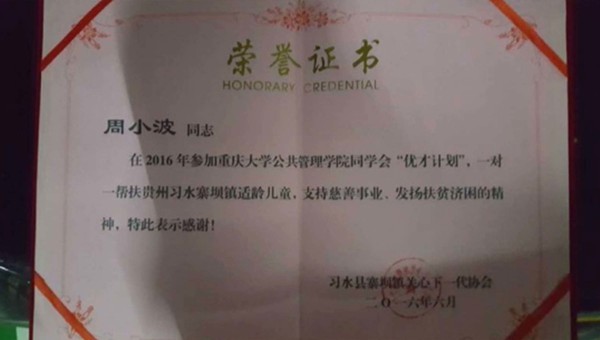 荣誉证书
HONORARY CREDENTIAL
周小波 同志
在2016年参加重庆大学公共管理学院同学会“优才计划”，一对
一帮扶贵州习水寨坝镇适龄儿童，支持慈善事业、发扬扶贫济困的精
神，特此表示感谢！
习水县寨坝镇关心下一代协会
二〇一六年六月